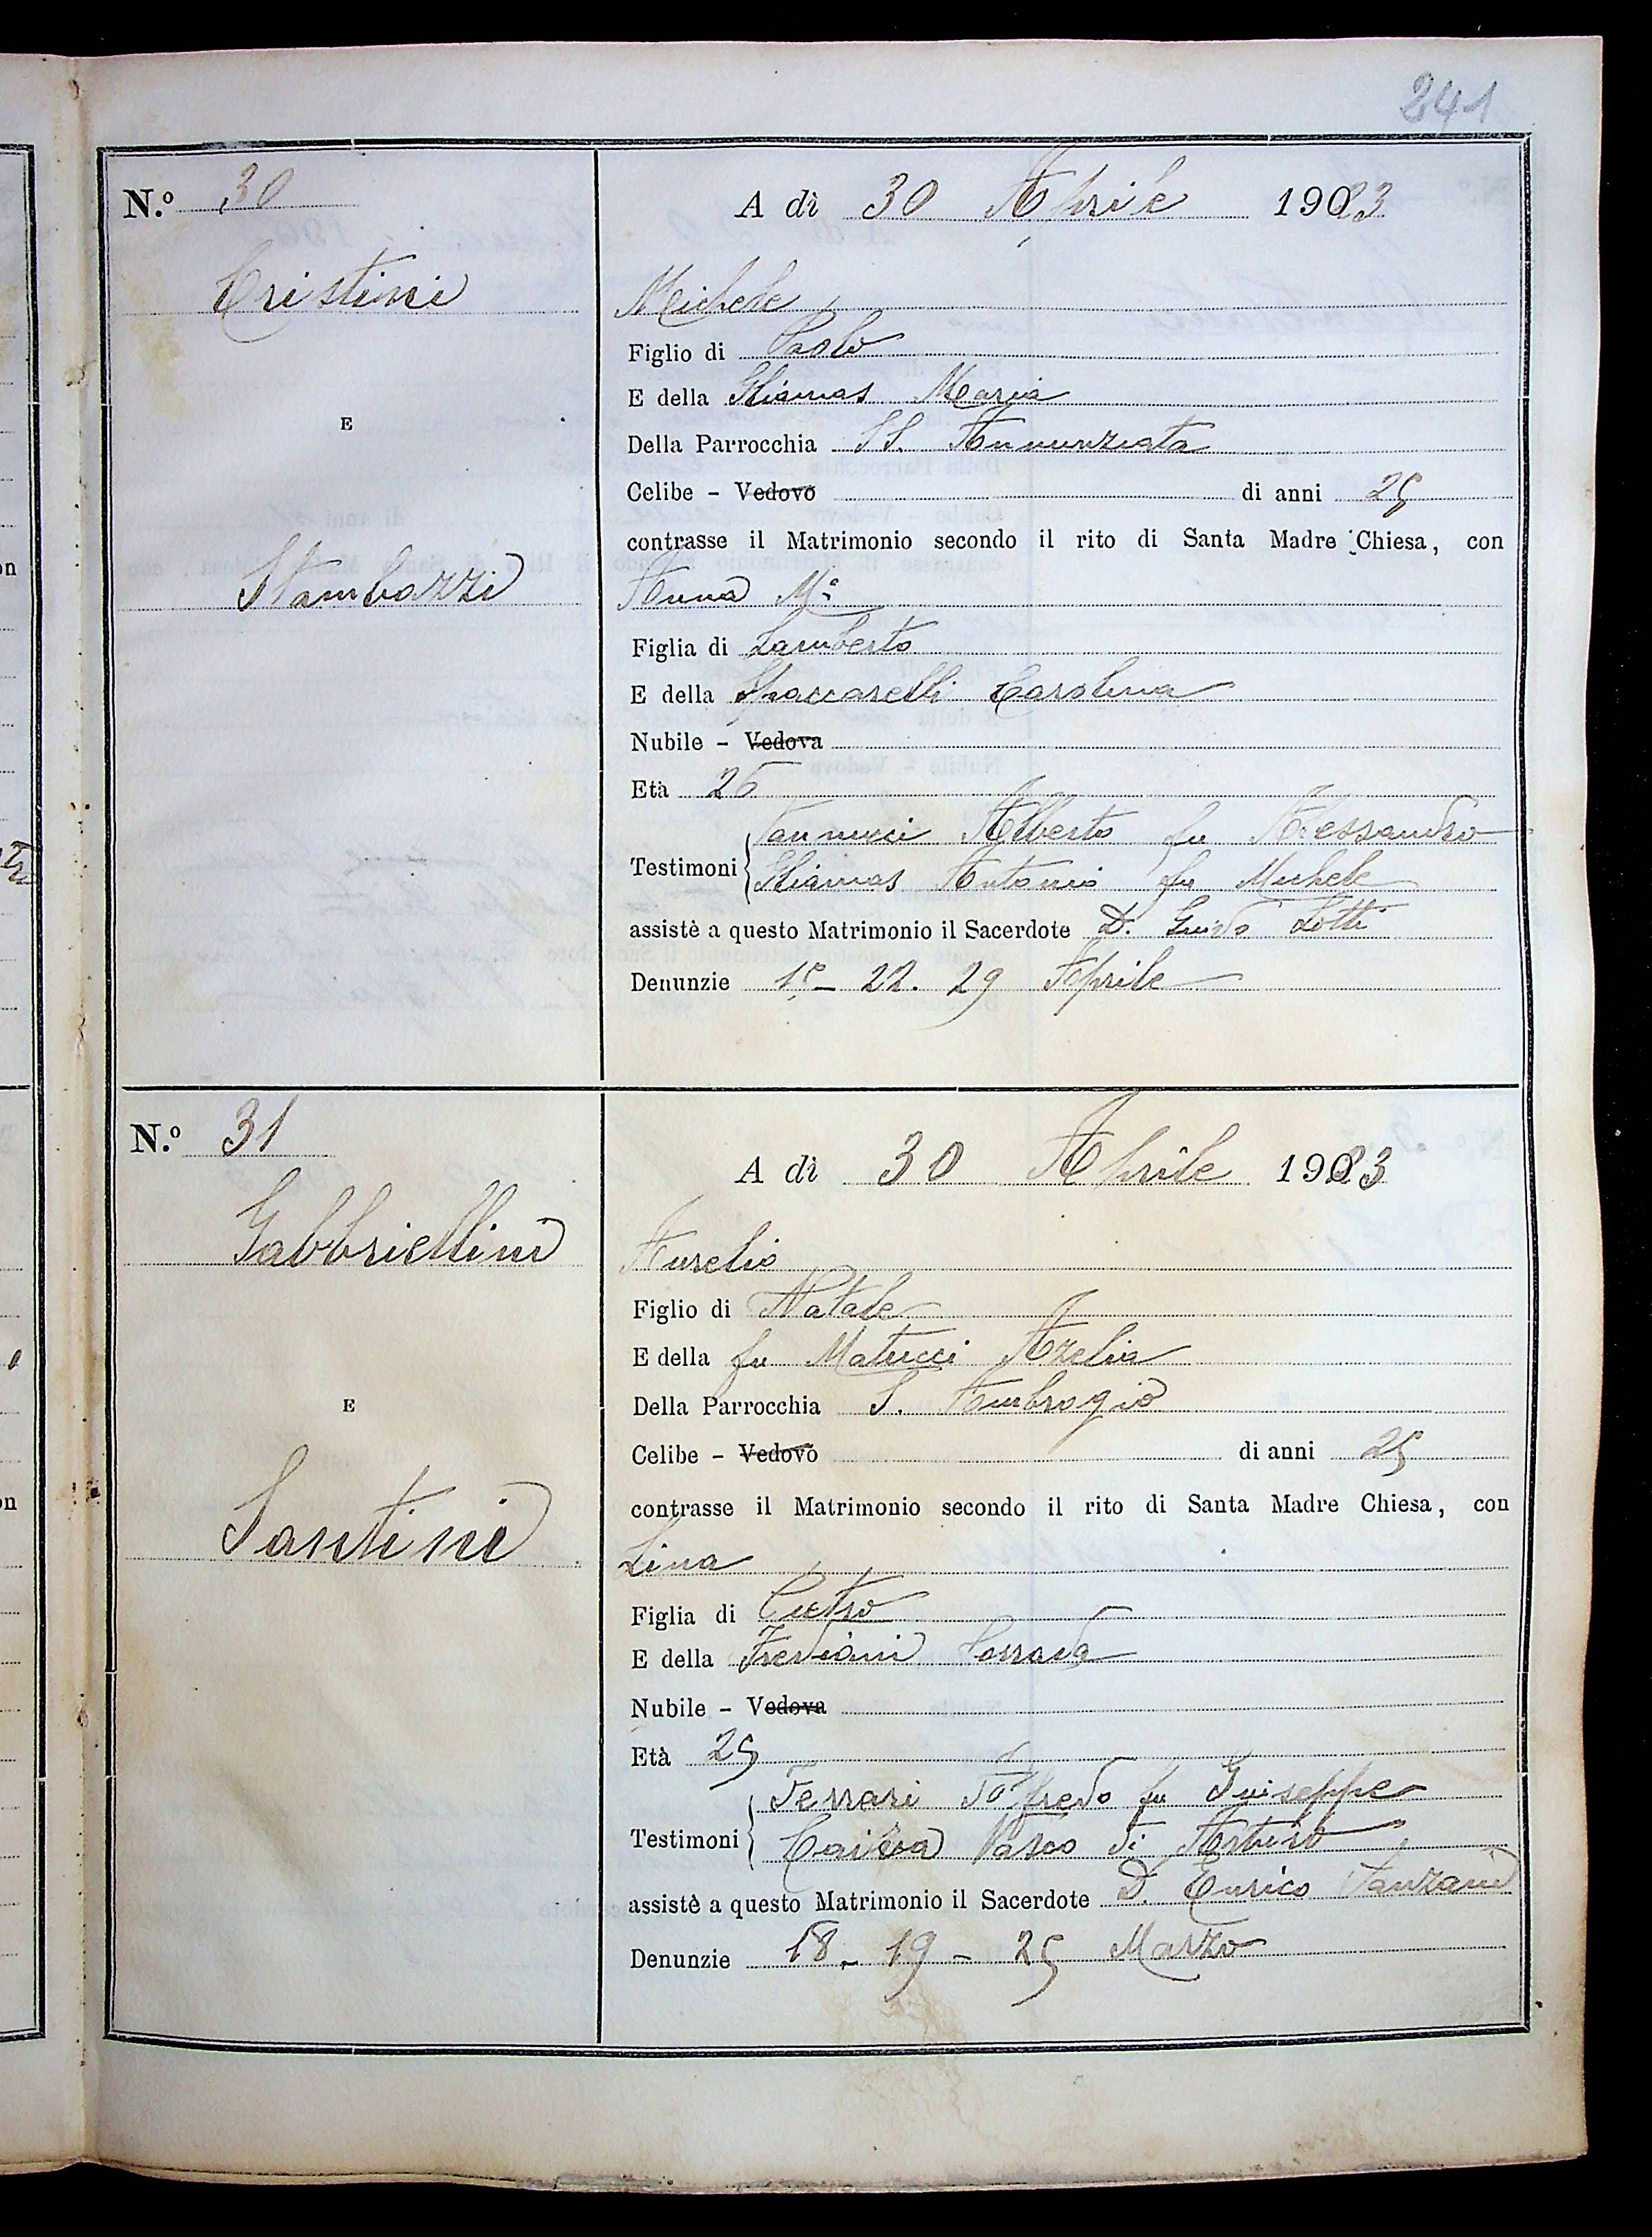 241
N.º 30
A dì 30 Aprile 1923
Cristini
Michele
Figlio di Paolo
E della Maria
E
Della Parrocchia SS. Annunziata
Celibe - Vedovo di anni 25
contrasse il Matrimonio secondo il rito di Santa Madre Chiesa, con
Stambazzi
Anna Mª
Figlia di Lamberto
E della Spaccarelli Carolina
Nubile - Vedova
Età 26
Vannucci Alberto fu Alessandro
Testimoni
Antonio fu Michele
assistè a questo Matrimonio il Sacerdote D. Guido Lotti
Denunzie 15 - 22. 29 Aprile
N.º 31
A dì 30 Aprile 1923
Gabbriellini
Aurelio
Figlio di Natale
E della fu Matucci Azelia
E
Della Parrocchia S. Ambrogio
Celibe - Vedovo di anni 25
contrasse il Matrimonio secondo il rito di Santa Madre Chiesa, con
Santini
Lina
Figlia di Pietro
E della Frediani Corrada
Nubile - Vedova
Età 25
Ferrari Alfredo fu Giuseppe
Testimoni
Vasco di Arturo
assistè a questo Matrimonio il Sacerdote D. Enrico Vanzani
Denunzie 18 - 19 - 25 Marzo